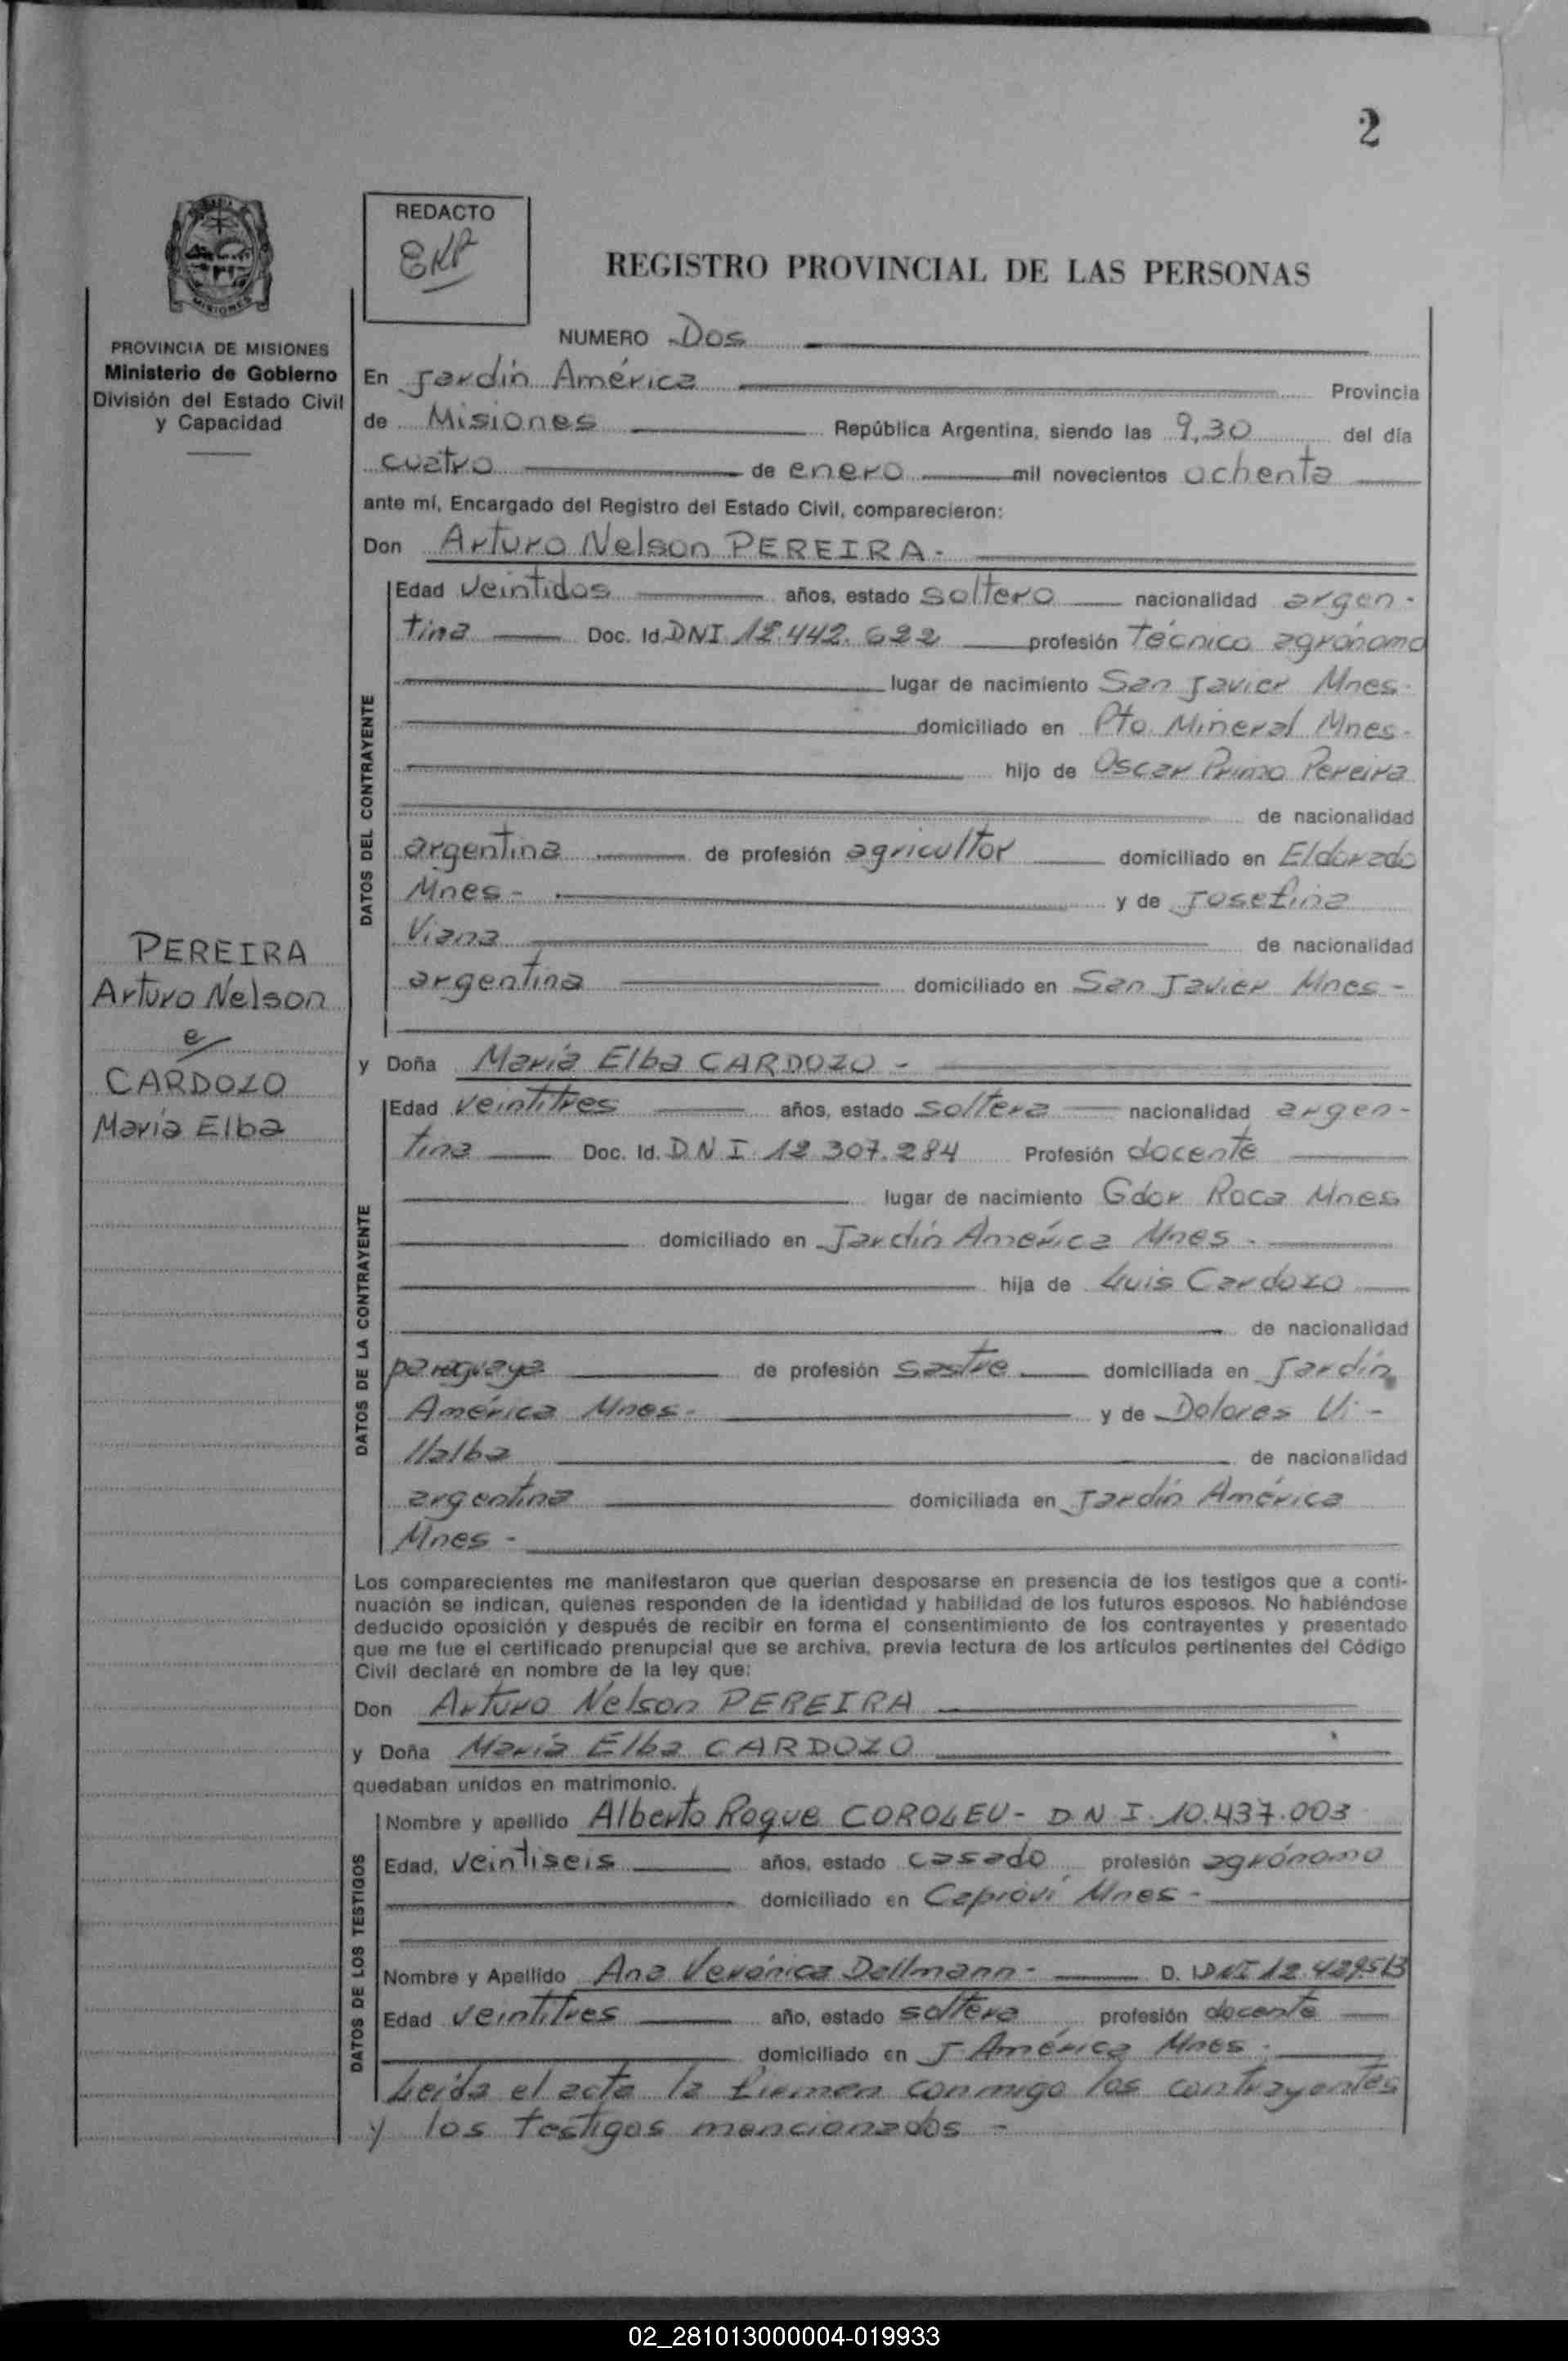 2
REDACTO
REGISTRO PROVINCIAL DE LAS PERSONAS
MISIONES
PROVINCIA DE MISIONES
Ministerio de Gobierno
División del Estado Civil
y Capacidad
PEREIRA
Arturo Nelson
e/
CARDOZO
María Elba
NUMERO Dos
En Jardín América Provincia
de Misiones República Argentina, siendo las 9,30 del día
cuatro de enero mil novecientos ochenta
ante mí, Encargado del Registro del Estado Civil, comparecieron:
Don Arturo Nelson PEREIRA.-
DATOS DEL CONTRAYENTE
Edad veintidos años, estado soltero nacionalidad argen-
tina Doc. Id. DNI 12.442.622 profesión Técnico agrónomo
lugar de nacimiento San Javier Mnes.
domiciliado en Pto Mineral Mnes.
hijo de Oscar Primo Pereira
de nacionalidad
argentina de profesión agricultor domiciliado en Eldorado
Mnes- y de Josefina
Viana de nacionalidad
argentina domiciliado en San Javier Mnes-
y Doña María Elba CARDOZO-
DATOS DE LA CONTRAYENTE
Edad veintitres años, estado soltera nacionalidad argen-
tina Doc. Id. DNI 12.307.284 Profesión docente
lugar de nacimiento Gdor Roca Mnes
domiciliado en Jardín América Mnes.
hija de Luis Cardozo
de nacionalidad
paraguaya de profesión sastre domiciliada en Jardín
América Mnes- y de Dolores Vi-
llalba de nacionalidad
argentina domiciliada en Jardín América
Mnes-
Los comparecientes me manifestaron que querían desposarse en presencia de los testigos que a conti-
nuación se indican, quienes responden de la identidad y habilidad de los futuros esposos. No habiéndose
deducido oposición y después de recibir en forma el consentimiento de los contrayentes y presentado
que me fue el certificado prenupcial que se archiva, previa lectura de los artículos pertinentes del Código
Civil declaré en nombre de la ley que:
Don Arturo Nelson PEREIRA
y Doña María Elba CARDOZO
quedaban unidos en matrimonio.
DATOS DE LOS TESTIGOS
Nombre y apellido Alberto Roque COROLEU- DNI 10.437.003
Edad, veintiseis años, estado casado profesión agrónomo
domiciliado en Capioví Mnes-
Nombre y Apellido Ana Verónica Dallmann- D. I. DNI 12.429.513
Edad veintitres año, estado soltera profesión docente
domiciliado en J. América Mnes.
Leída el acta la firman conmigo los contrayentes
y los testigos mencionados-
02_281013000004-019933